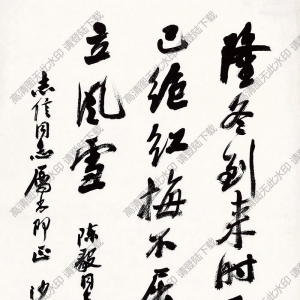 隆冬到来时
已绝红梅不屈
立风雪
陈毅同
志信同志属书即正